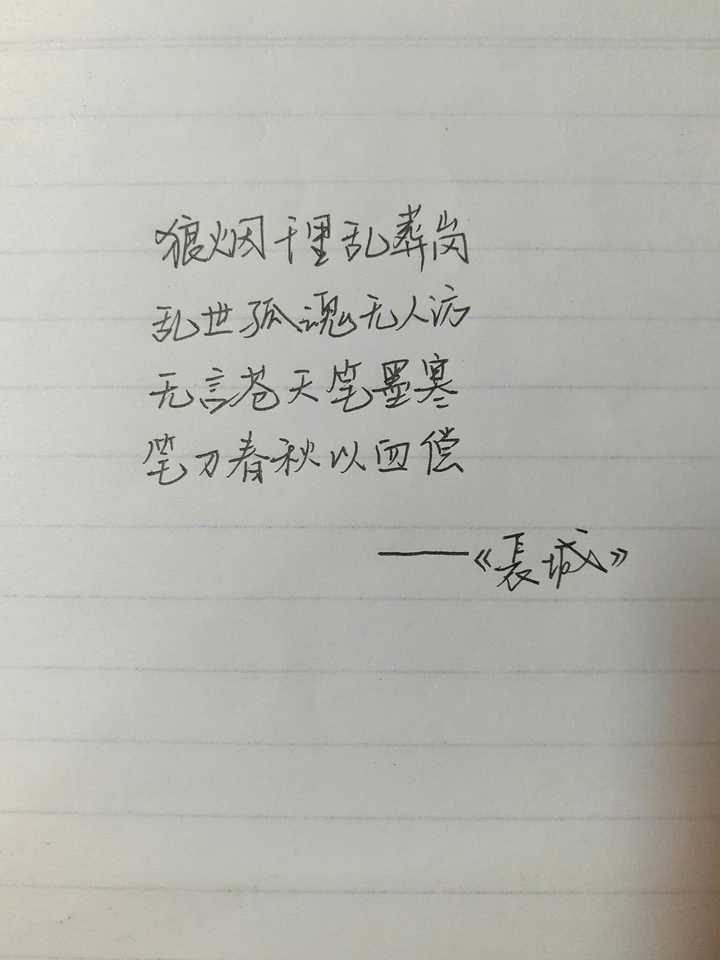 狼烟千里乱葬岗
乱世孤魂无人访
无言苍天笔墨寒
笔刀春秋以血偿
——《長城》